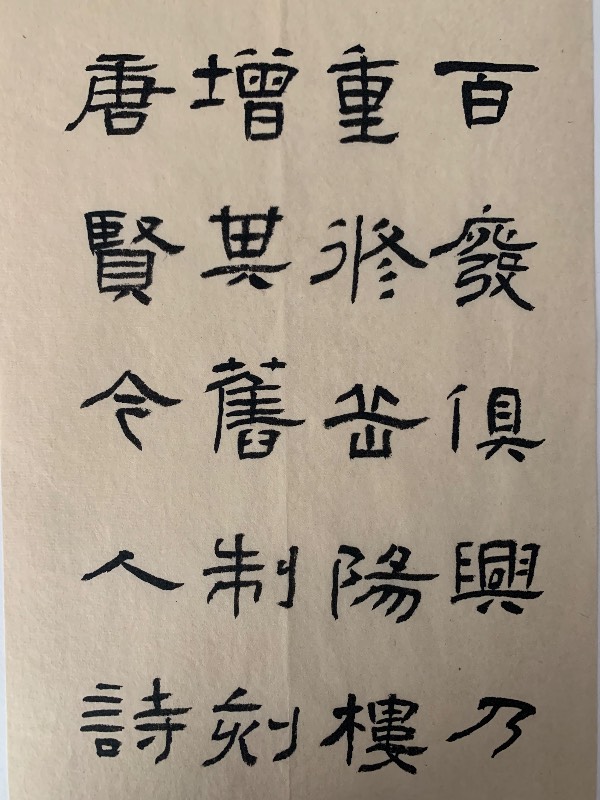 百廢俱興乃
重修岳陽樓
增其舊制刻
唐賢令人詩